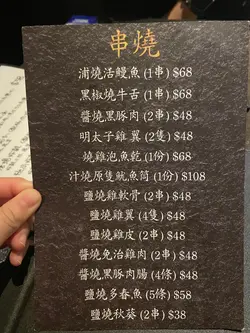 串燒
浦燒活鰻魚 (1串) $68
黑椒燒牛舌 (1串) $68
醬燒黑豚肉 (2串) $48
明太子雞翼 (2隻) $48
燒雞泡魚乾 (1份) $68
汁燒原隻魷魚筒 (1份) $108
鹽燒雞軟骨 (2串) $48
鹽燒雞翼 (4隻) $48
鹽燒雞皮 (2串) $48
醬燒免治雞肉 (2串) $48
鹽燒黑豚肉腸 (4條) $48
鹽燒多春魚 (5條) $58
鹽燒秋葵 (2串) $38